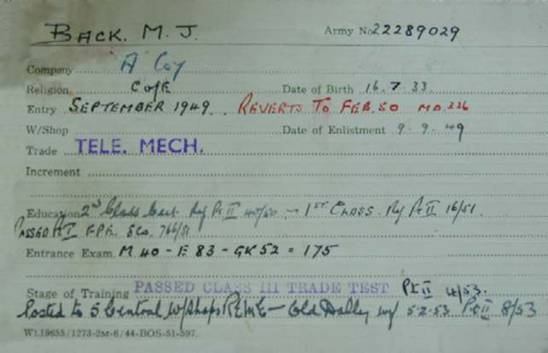 BACK. M. J. Army No 22289029
Company A Coy
Religion C of E Date of Birth 16.7.33.
Entry SEPTEMBER 1949. REVERTS TO FEB. 50 MO. 226
W/Shop Date of Enlistment 9-9-49
Trade TELE. MECH.
Increment
Education 2nd Class Cert. Pt II 40/50 - 1ST CLASS. Pt II 16/51.
PASSED 766/51
Entrance Exam. M 40 - E 83 - GK 52 = 175
Stage of Training PASSED CLASS III TRADE TEST Pt II 4/53.
Posted to 5 Central W/Shops REME - Old Dalby 5-2-53 Pt II 8/53
Wt.18655/1273-2m-6/44-BOS-51-597.